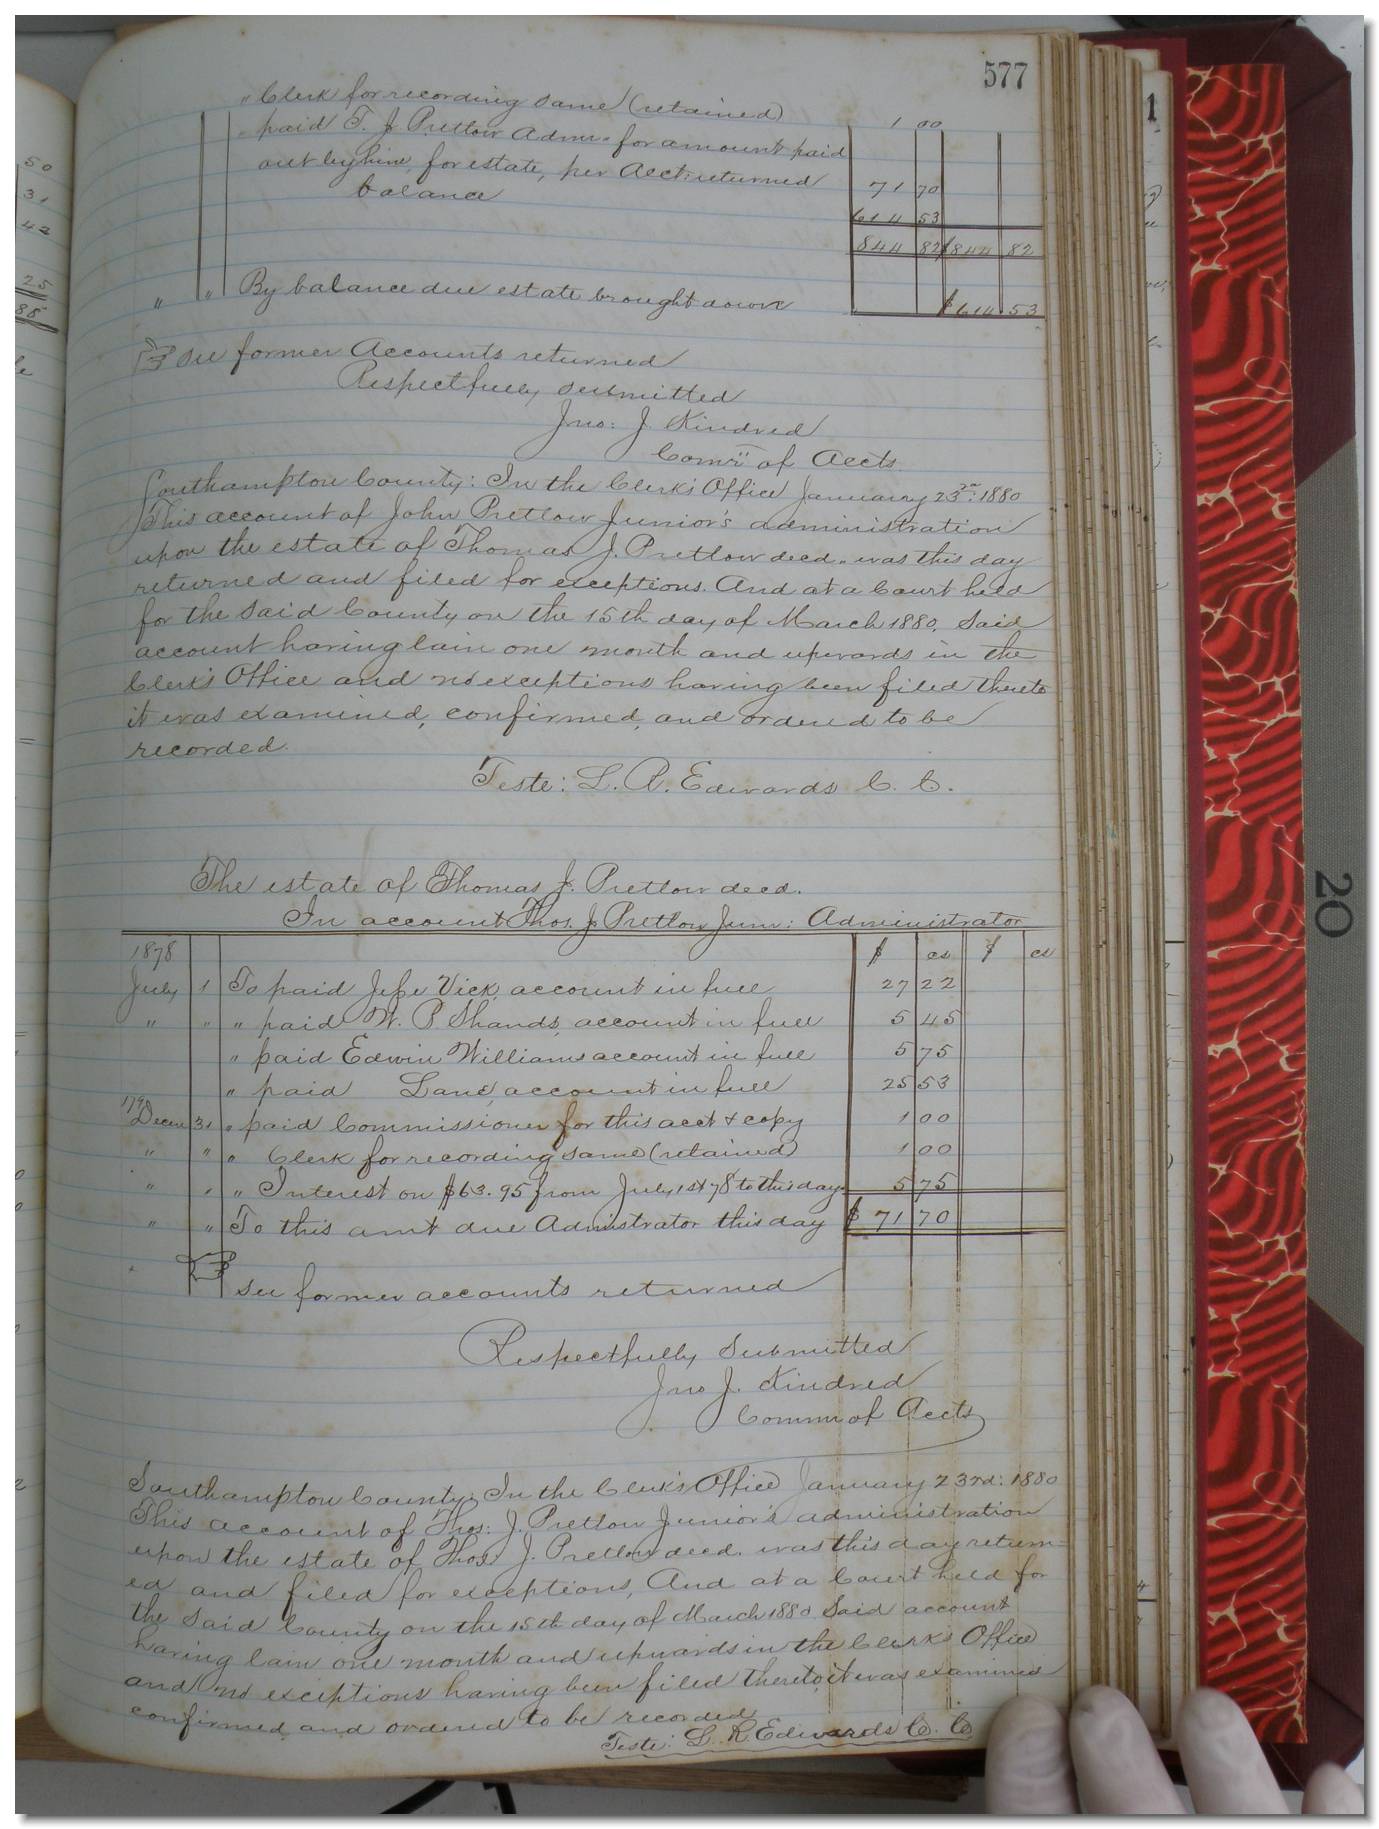 577
" Clerk for recording same (retained) 1 00
" paid T. J. Pretlow Admr. for amount paid
out by him, for estate, per Acct: returned 71 70
balance 614 53
844 82 $844 82
" " By balance due estate brought down $614 53
See former Accounts returned
Respectfully submitted
Jno: J. Kindred
Comr. of Accts.
Southampton County: In the Clerk's Office January 23rd: 1880
This account of John Pretlow Junior's administration
upon the estate of Thomas J. Pretlow decd. was this day
returned and filed for exceptions. And at a Court held
for the said County on the 15th day of March 1880. Said
account having lain one month and upwards in the
Clerk's Office and no exceptions having been filed thereto
it was examined, confirmed, and ordered to be
recorded.
Teste: L. R. Edwards C. C.
The estate of Thomas J. Pretlow decd.
In account Thos. J Pretlow Junr: Administrator
1878 $ cs $ cs
July 1 To paid Vick, account in full 27 22
" " " paid W. P Shands, account in full 5 45
" paid Edwin Williams account in full 5 75
" paid Land, account in full 25 53
Decem 31 " paid Commissioner for this acct & copy 1 00
" " " Clerk for recording same (retained) 1 00
" " " Interest on $63.95 from July 1st 78 to this day 5 75
" " To this amt due Admistrator this day $ 71 70
See former accounts returned
Respectfully Submitted
Jno J. Kindred
Comm of Accts
Southampton County: In the Clerk's Office January 23rd: 1880
This account of Thos: J. Pretlow Junior's administration
upon the estate of Thos J. Pretlow decd. was this day return-
ed and filed for exceptions, And at a Court held for
the said County on the 15th day of March 1880 Said account
having lain one month and upwards in the Clerks Office
and no exceptions having been filed thereto it was examined
confirmed and ordered to be recorded
Teste: L. R Edwards C. C
1
20
50
31
42
25
88